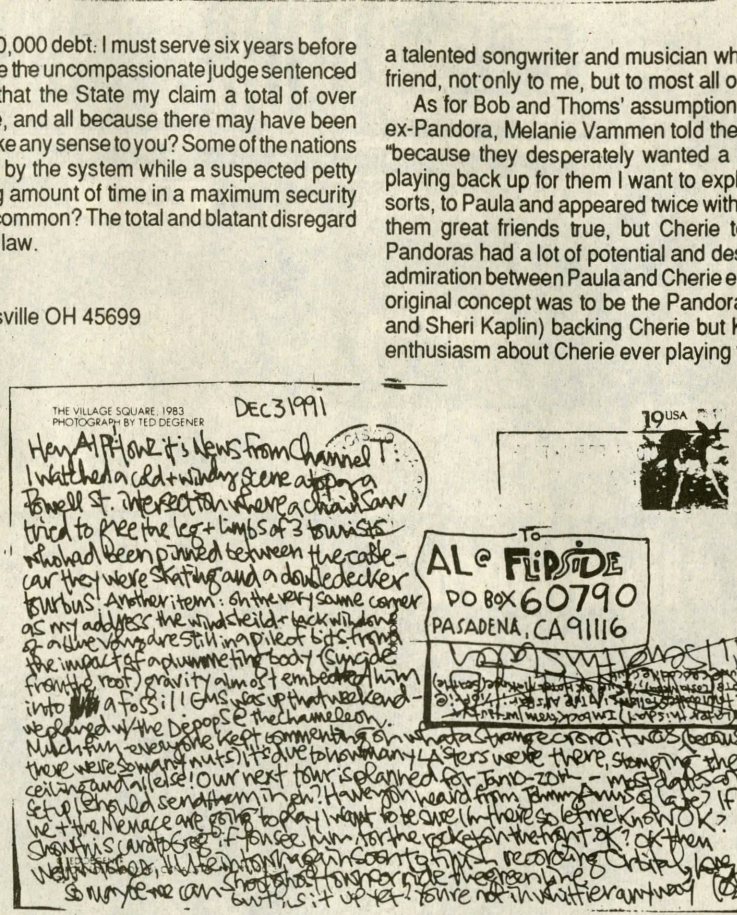 0,000 debt. I must serve six years before
e the uncompassionate judge sentenced
that the State my claim a total of over
e, and all because there may have been
ke any sense to you? Some of the nations
by the system while a suspected petty
g amount of time in a maximum security
common? The total and blatant disregard
law.
sville OH 45699
a talented songwriter and musician wh
friend, not only to me, but to most all o
As for Bob and Thoms' assumption
ex-Pandora, Melanie Vammen told the
"because they desperately wanted a
playing back up for them I want to expl
sorts, to Paula and appeared twice with
them great friends true, but Cherie t
Pandoras had a lot of potential and des
admiration between Paula and Cherie e
original concept was to be the Pandora
and Sheri Kaplin) backing Cherie but K
enthusiasm about Cherie ever playing
THE VILLAGE SQUARE, 1983
PHOTOGRAPH BY TED DEGENER
DEC 3 1991
Hey Al P. Howz it's News from Channel T.
I watched a cold + windy scene atop a
Powell St. intersection where a chainsaw
tried to free the leg + limbs of 3 tourists
who had been pinned between the cable-
car they were skating and a doubledecker
tourbus. Another item: on the very same corner
as my address the windsheild + back window
of a blue van are still in a pile of bits from
the impact of a plummeting body (suicide
from the roof) gravity almost embedded him
into a fossil! EMS was up that weekend-
we played w/ the Depops @ the chameleon.
Much fun-everyone kept commenting on what a strange crowd it was (because
there were so many nuts) it's due to how many LA'sters were there, stomping the
ceiling and all else! Our next tour is planned for Jan 10-20th - most dates are
setup (should send them in, eh? Have you heard from Tommy of late? If
he + the Menace are going to play I want to be sure I'm there so let me know OK?
Show this card to Greg if you see him, for the rockets on the front, ok? OK then
soon to finish recording Orbital, love
so maybe we can ride the green line,
is it up yet? You're not in whittier anyway
19 USA
To
AL @ FLIPSIDE
PO BOX 60790
PASADENA, CA 91116